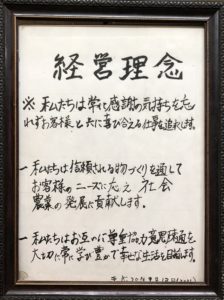 経営理念
※私たちは常に感謝の気持ちを忘
れずお客様と共に喜び合える仕事を追求します。
一 私たちは信頼される物づくりを通して
お客様のニーズに応え 社会
農業の発展に貢献します。
一 私たちはお互いに尊重協力意思疎通を
大切に常に学び豊かで幸せな生活を目指します。